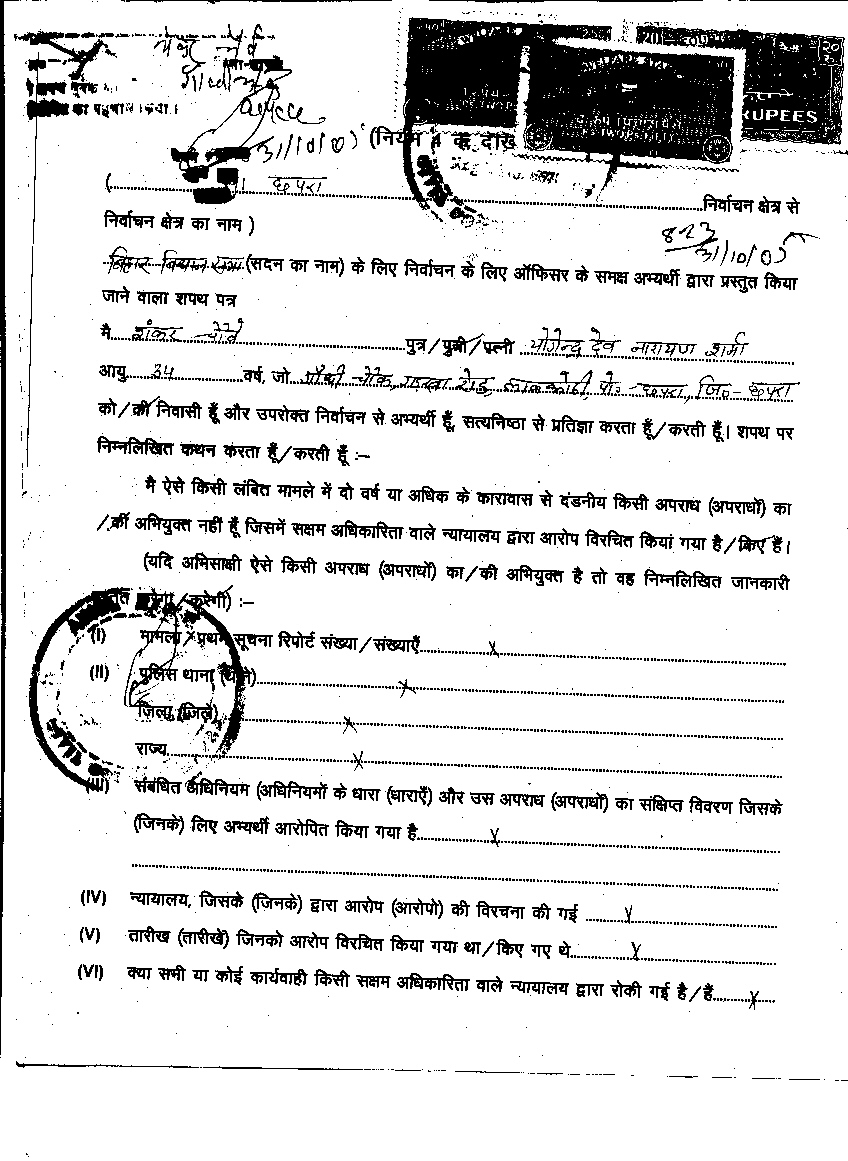 31/10/05 (नियम
छपरा
निर्वाचन क्षेत्र से
निर्वाचन क्षेत्र का नाम )
823
31/10/05
बिहार विधान सभा (सदन का नाम) के लिए निर्वाचन के लिए ऑफिसर के समक्ष अभ्यर्थी द्वारा प्रस्तुत किया
जाने वाला शपथ पत्र
मै शंकर पुत्र/पुत्री/पत्नी योगेन्द्र देव नारायण शर्मा
आयु 34 वर्ष, जो रोड, पो०-छपरा, जि०-छपरा
को/की निवासी हूँ और उपरोक्त निर्वाचन से अभ्यर्थी हूँ, सत्यनिष्ठा से प्रतिज्ञा करता हूँ/करती हूँ। शपथ पर
निम्नलिखित कथन करता हूँ/करती हूँ :–
मै ऐसे किसी लंबित मामले में दो वर्ष या अधिक के कारावास से दंडनीय किसी अपराध (अपराधों) का
/की अभियुक्त नहीं हूँ जिसमें सक्षम अधिकारिता वाले न्यायालय द्वारा आरोप विरचित किया गया है/किए हैं।
(यदि अभिसाक्षी ऐसे किसी अपराध (अपराधों) का/की अभियुक्त है तो वह निम्नलिखित जानकारी
करेगा/करेगी) :–
(I) मामला/प्रथम सूचना रिपोर्ट संख्या/संख्याएँ x
(II) पुलिस थाना (थाने) x
जिला (जिले) x
राज्य x
(III) संबंधित अधिनियम (अधिनियमों के धारा (धाराएँ) और उस अपराध (अपराधों) का संक्षिप्त विवरण जिसके
(जिनके) लिए अभ्यर्थी आरोपित किया गया है x
(IV) न्यायालय, जिसके (जिनके) द्वारा आरोप (आरोपो) की विरचना की गई x
(V) तारीख (तारीखें) जिनको आरोप विरचित किया गया था/किए गए थे x
(VI) क्या सभी या कोई कार्यवाही किसी सक्षम अधिकारिता वाले न्यायालय द्वारा रोकी गई है/हैं x